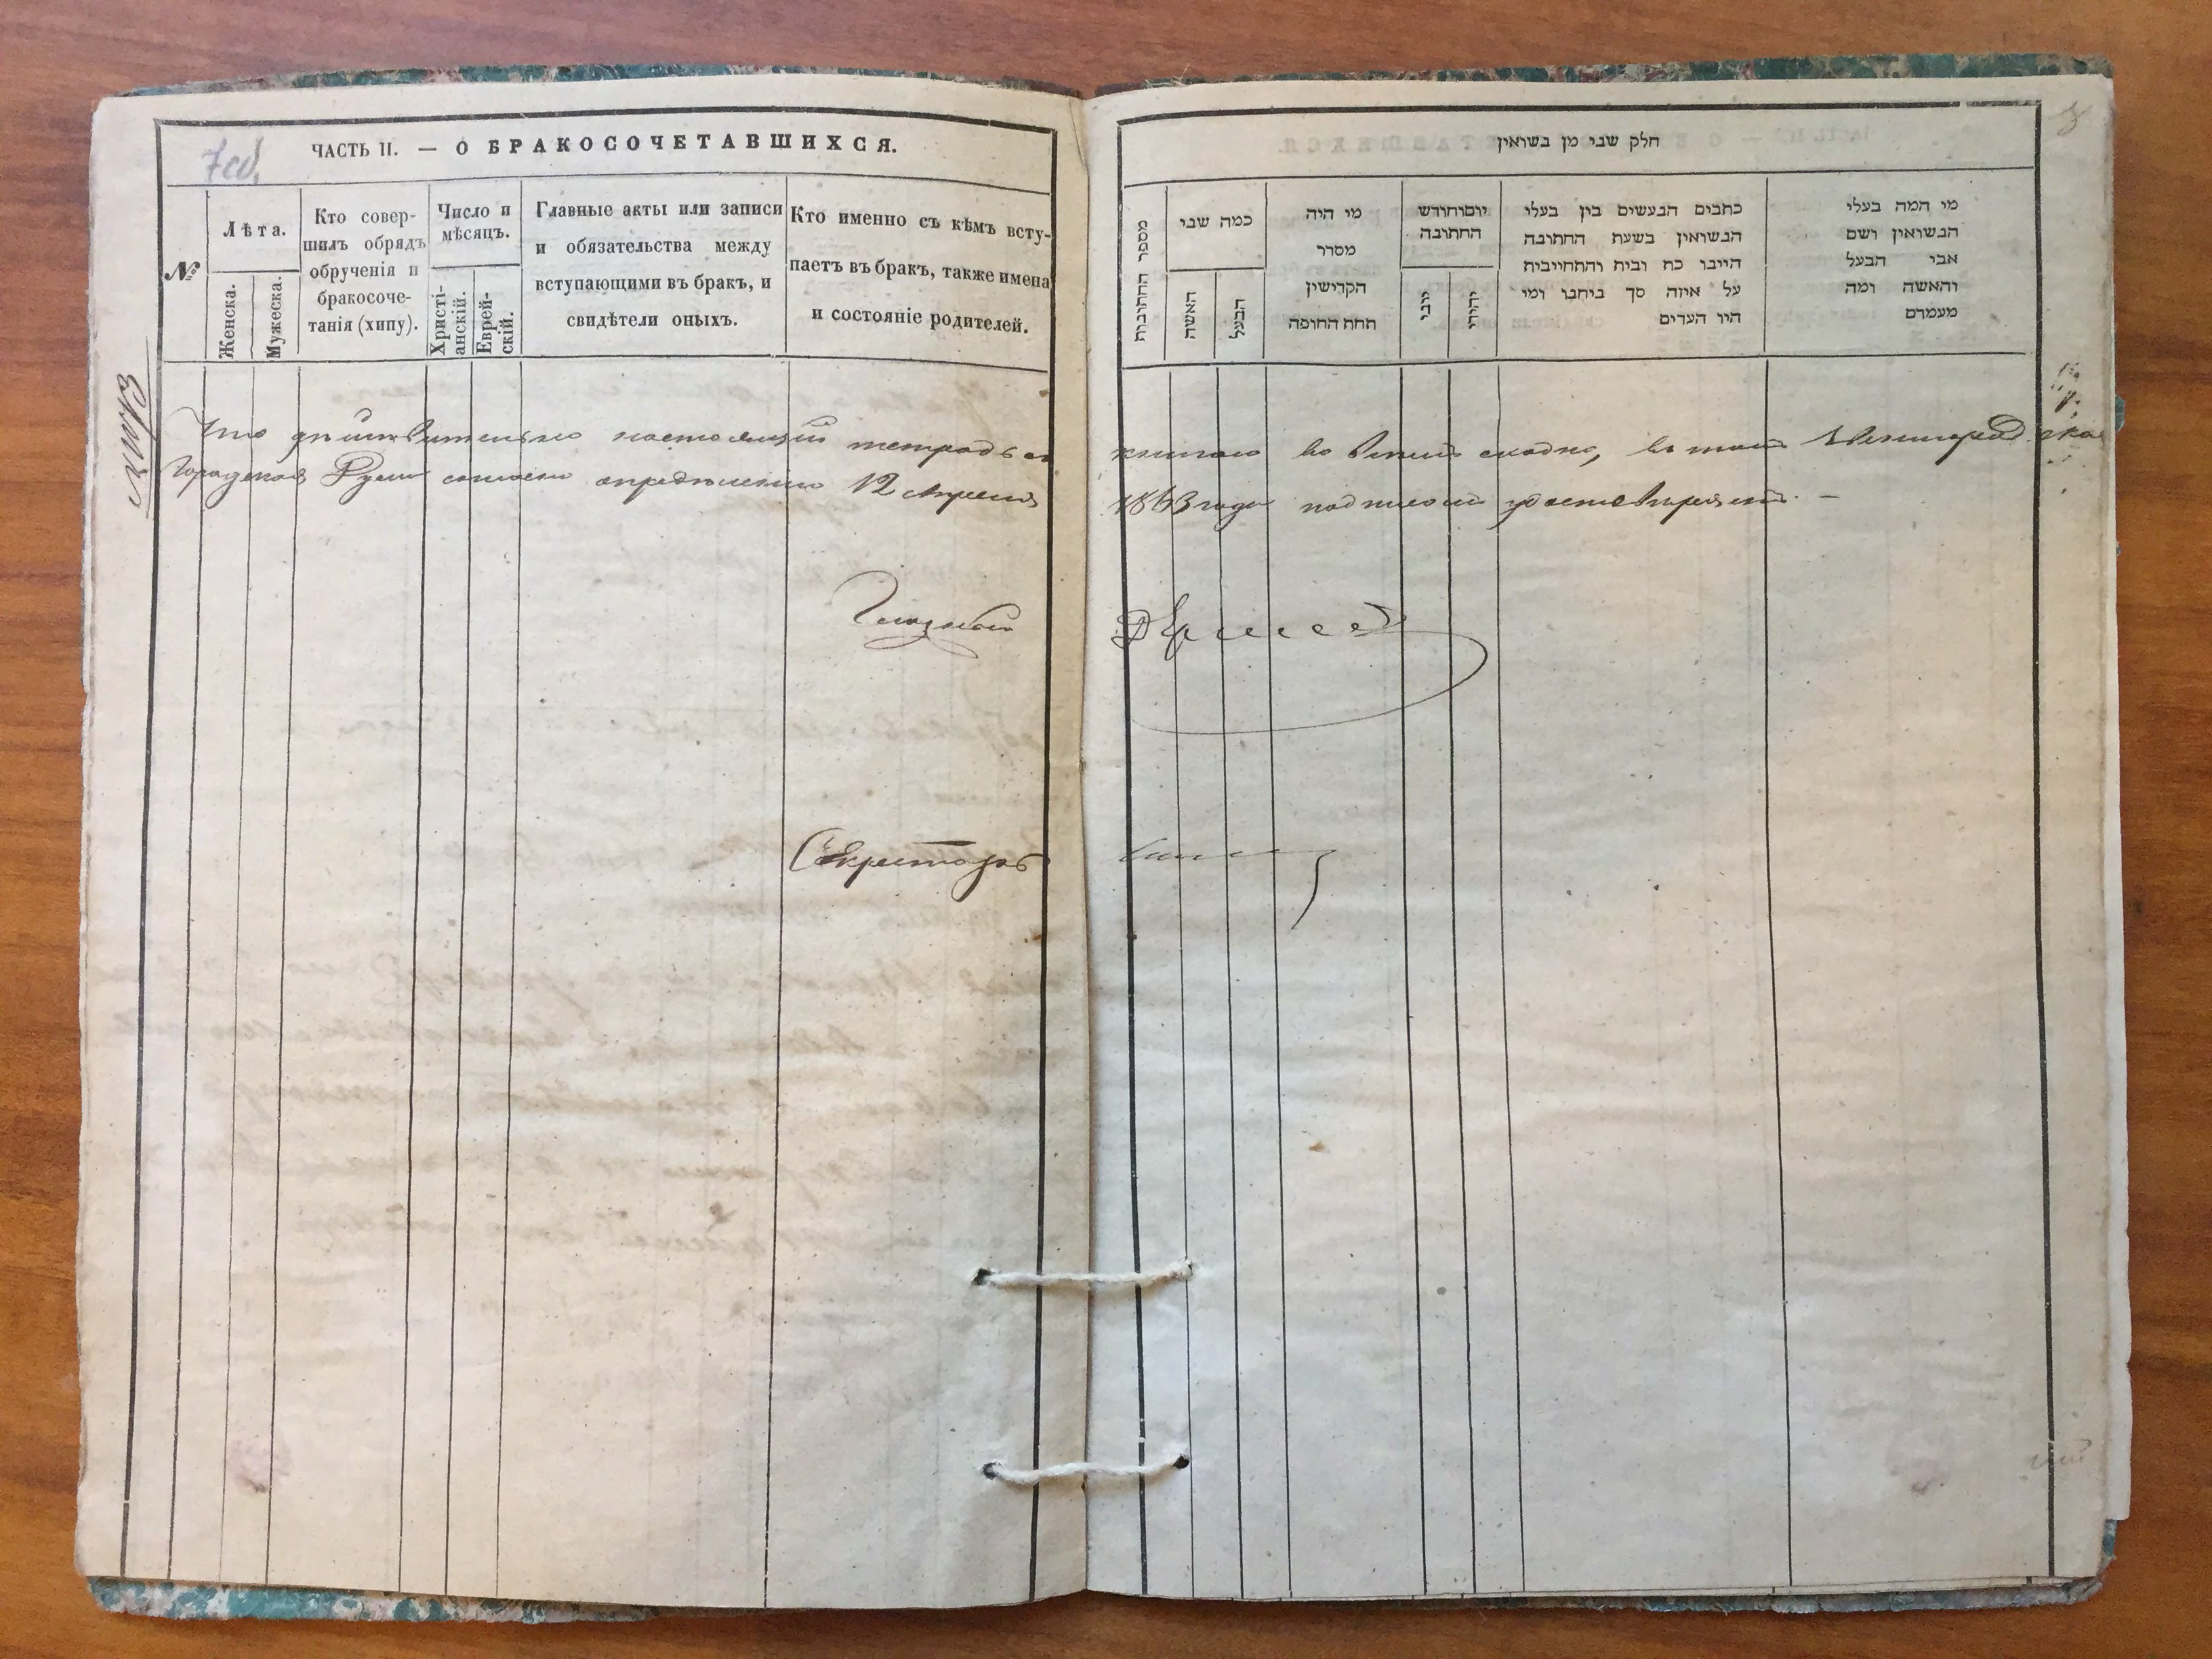 7 об.
ЧАСТЬ II. — О БРАКОСОЧЕТАВШИХСЯ.
№
Лѣта.
Женска.
Мужеска.
Кто совер-
шилъ обрядъ
обрученія и
бракосоче-
танія (хипу).
Число и
мѣсяцъ.
Христі-
анскій.
Еврей-
скій.
Главные акты или записи
и обязательства между
вступающими въ бракъ, и
свидѣтели оныхъ.
Кто именно съ кѣмъ всту-
паетъ въ бракъ, также имена
и состояніе родителей.
חלק שני מן נשואין
מספר החתונות
כמה שני
האשה
הבעל
מי היה
מסדר
הקדישין
תחת החופה
יוםוחודש
החתונה
יוני
יהודי
כתבים הנעשים בין בעלי
הנשואין בשעת החתונה
היינו כח ובית והתחייבית
על איזה סך ביחבו ומי
היו העדים
מי המה בעלי
הנשואין ושם
אבי הבעל
והאשה ומה
מעמדם
Что действительно настоящий тетрадь
книгою въ томъ
Городская Дума согласно определению 12 Апреля
1863 года подписом удостоверяетъ. —
Гласный
Секретарь